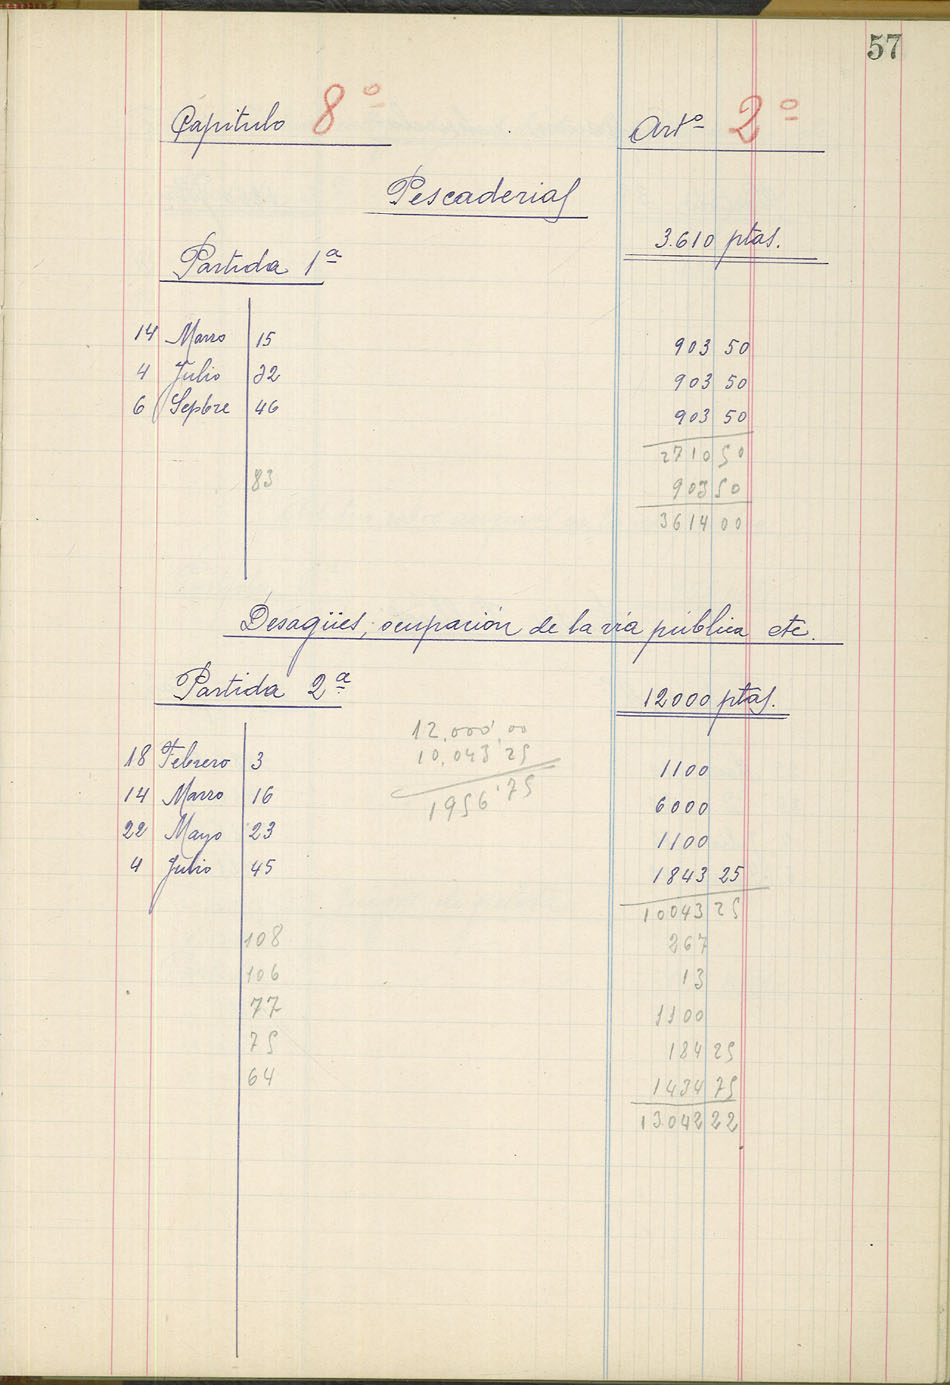 57
Capitulo 8º Artº 2º
Pescaderias
3.610 ptas.
Partida 1ª
14 Marzo 15 903 50
4 Julio 32 903 50
6 Sepbre 46 903 50
2710 50
83 903 50
3614 00
Desagües, ocupación de la vía pública etc.
Partida 2ª 12000 ptas.
12,000'00
10,043 25
1956'75
18 Febrero 3 1100
14 Marzo 16 6000
22 Mayo 23 1100
4 Julio 45 1843 25
10043 25
108 267
106 13
77 1100
75 184 25
64 1434 75
13.042 22